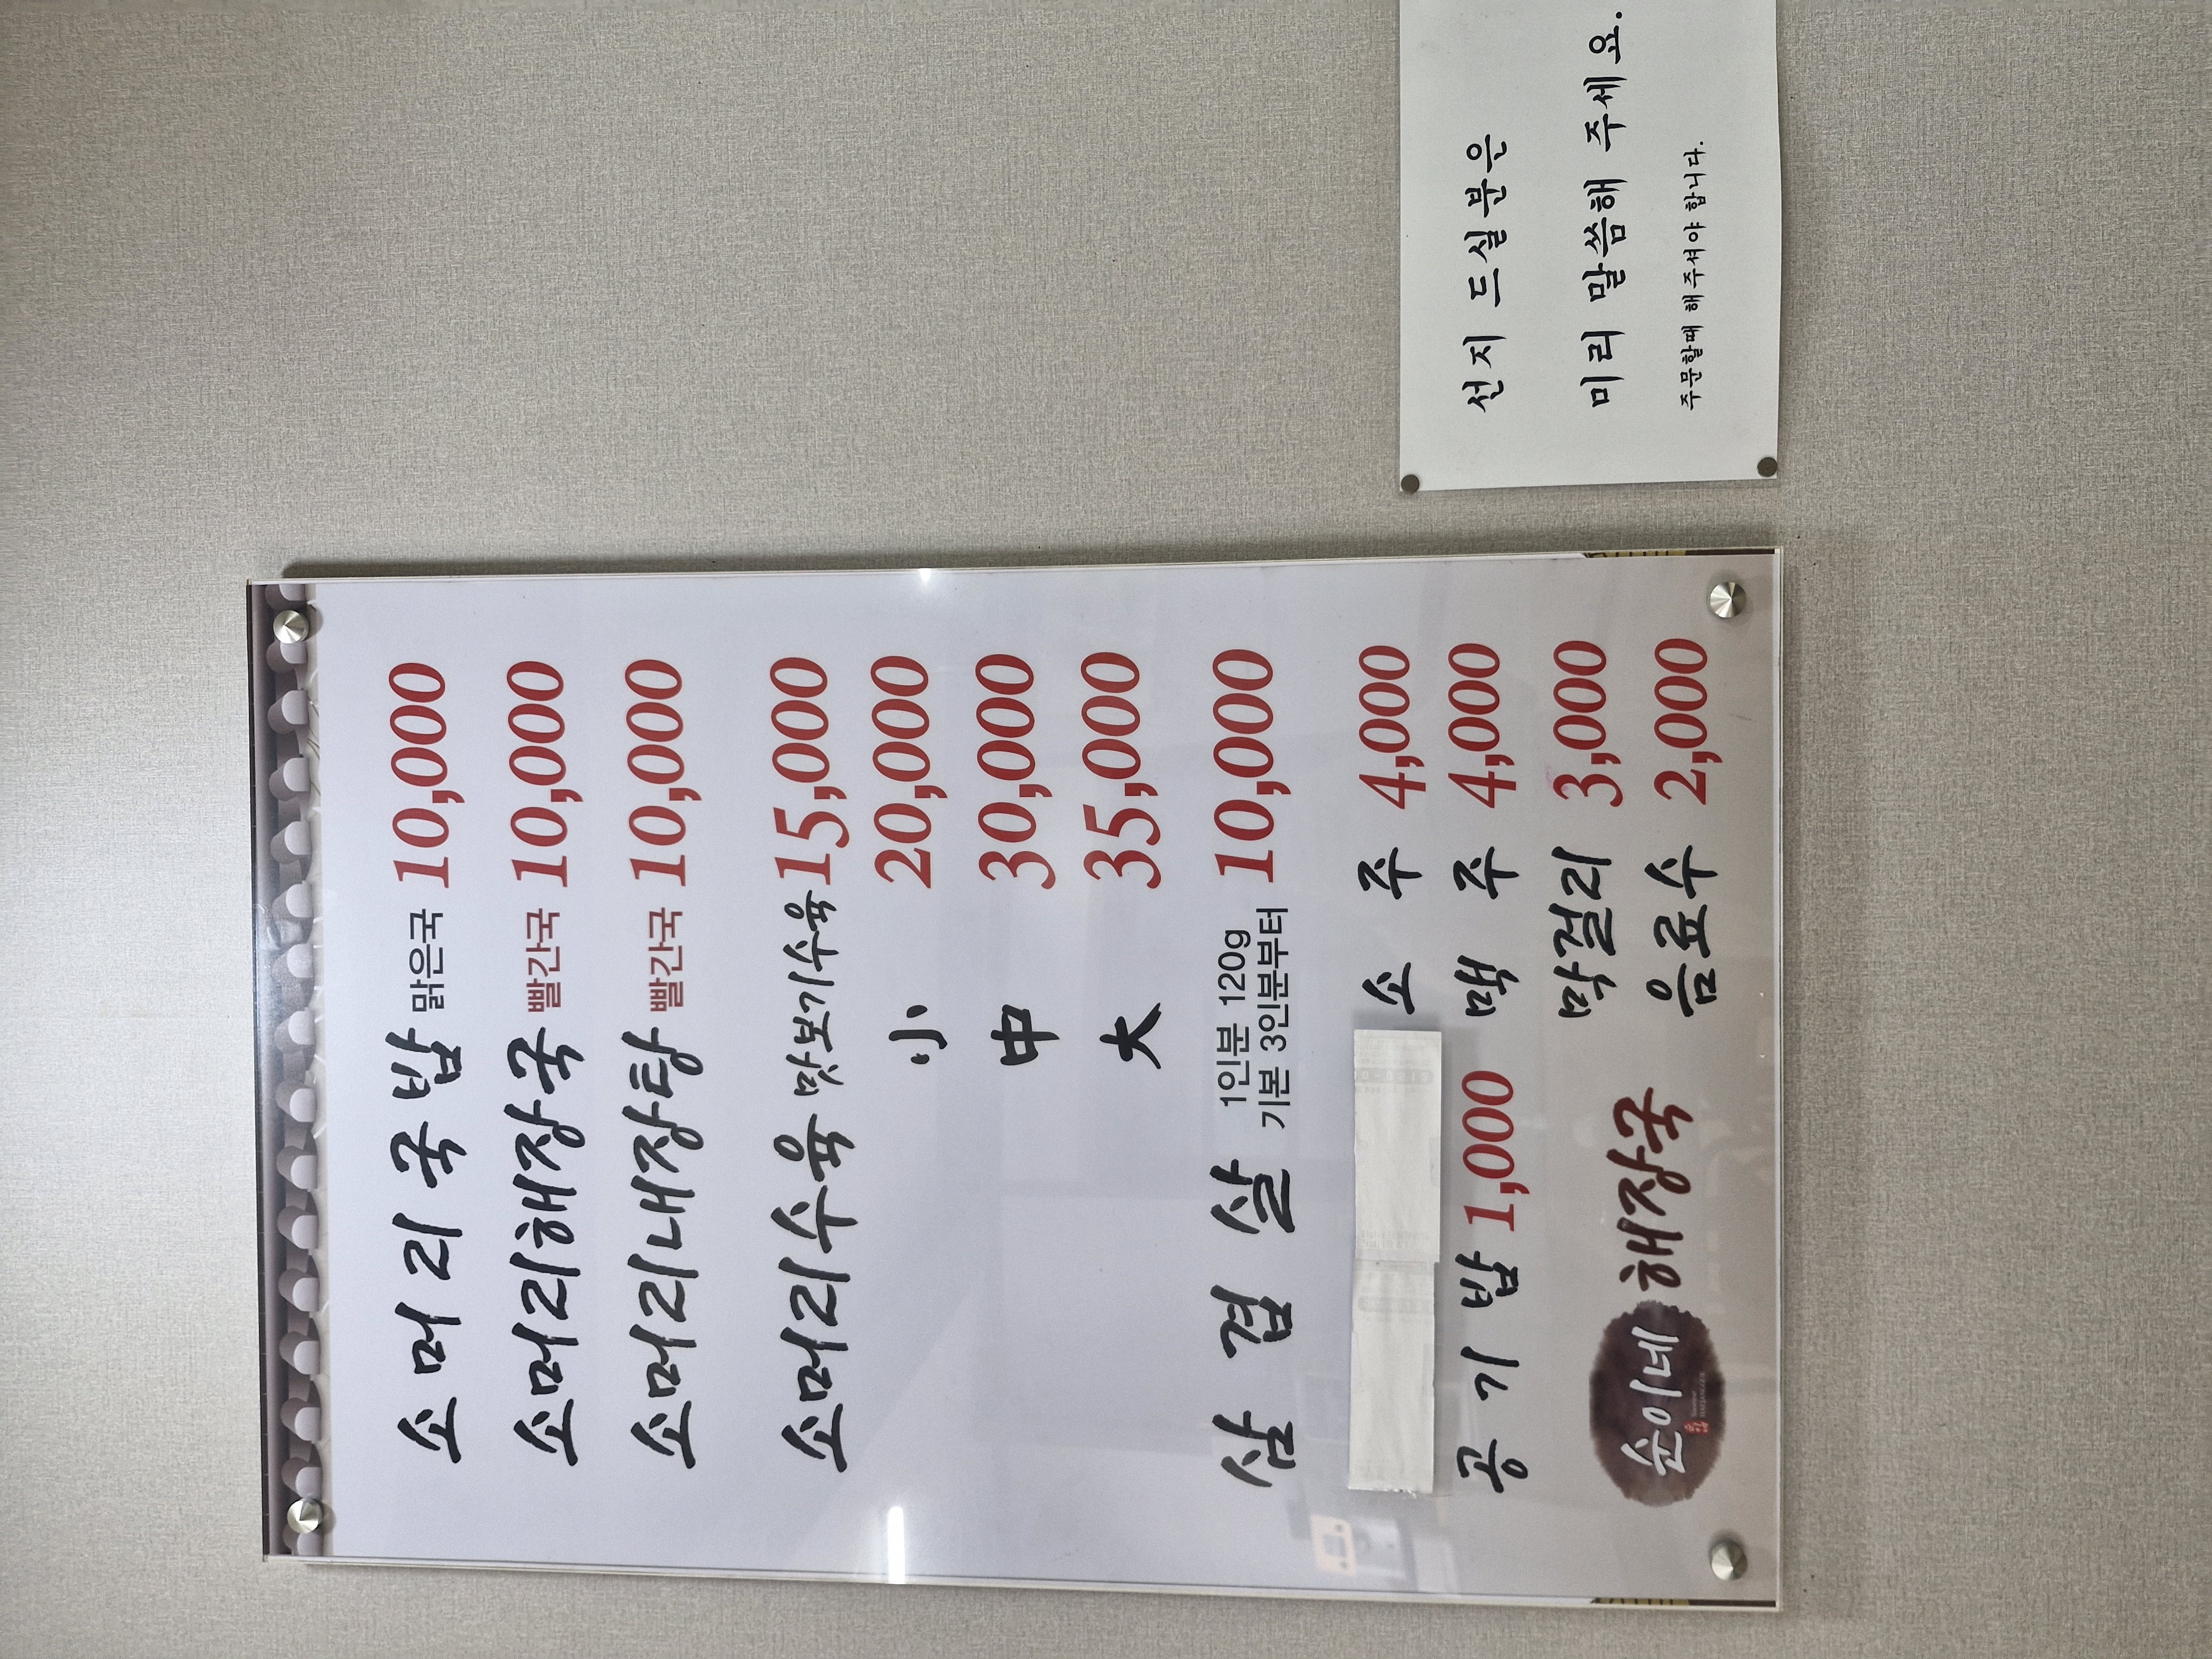 소머리국밥 맑은국 10,000
소머리해장국 빨간국 10,000
소머리내장탕 빨간국 10,000
소머리수육 맛보기수육 15,000
小 20,000
中 30,000
大 35,000
삼겹살 1인분 120g 기본 3인분부터 10,000
소주 4,000
공기밥 1,000 맥주 4,000
막걸리 3,000
음료수 2,000
손이네 해장국
선지 드실분은
미리 말씀해 주세요.
주문할때 해주셔야 합니다.